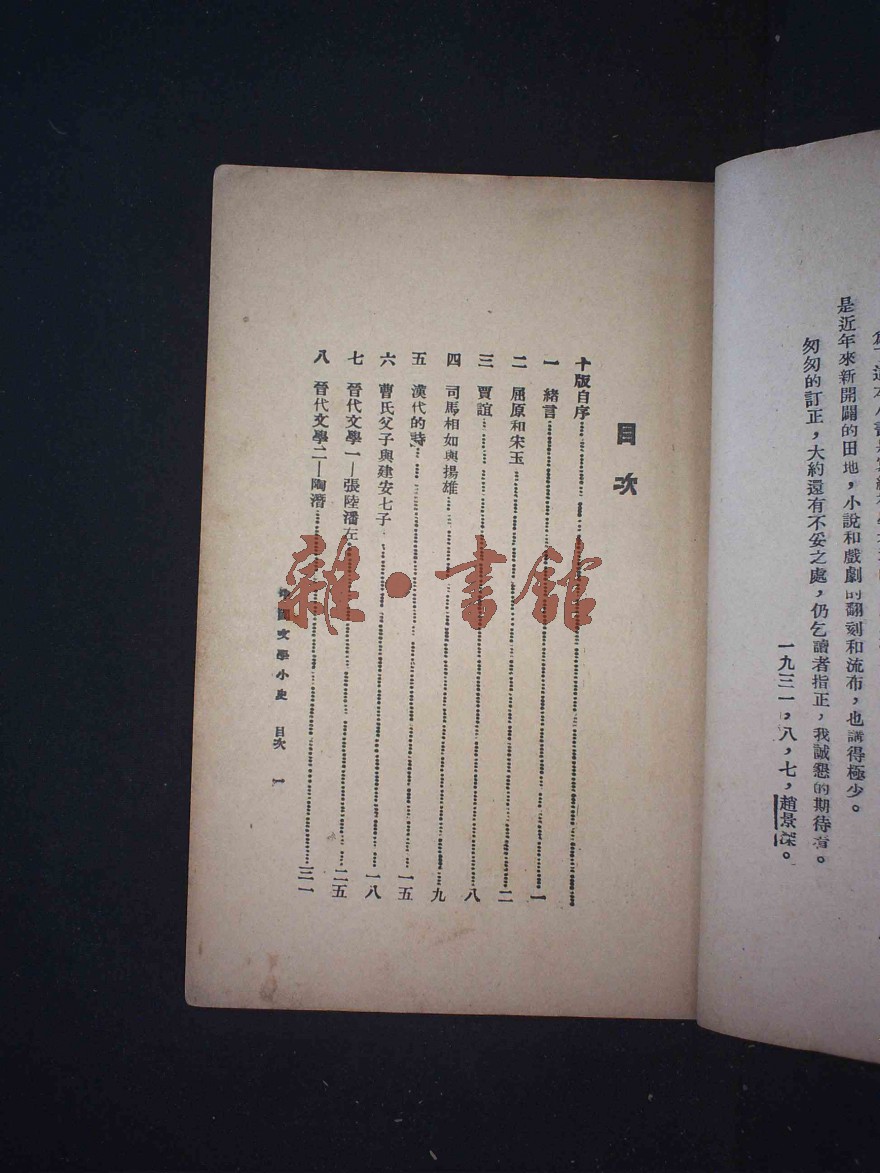 是近年來新開闢的田地，小說和戲劇的翻刻和流布，也講得極少。
匆匆的訂正，大約還有不妥之處，仍乞讀者指正，我誠懇的期待着。
一九三一，八，七，趙景深。
目次
十版自序
一 緒言 一
二 屈原和宋玉 二
三 賈誼 八
四 司馬相如與揚雄 九
五 漢代的詩 一五
六 曹氏父子與建安七子 一八
七 晉代文學一—張陸潘左 二五
八 晉代文學二—陶潛 三一
中國文學小史 目次 一
雜·書館